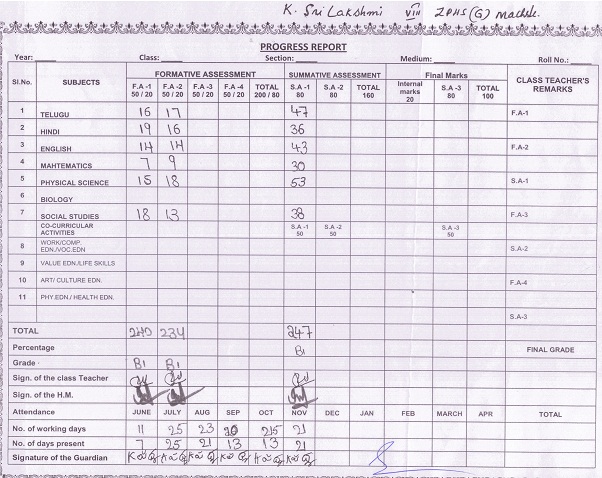 K. Sri Lakshmi VIII ZPHS (G) Machile.
PROGRESS REPORT
Year: Class: Section: Medium: Roll No.:
Sl.No. SUBJECTS FORMATIVE ASSESSMENT SUMMATIVE ASSESSMENT Final Marks CLASS TEACHER'S REMARKS
F.A -1 50 / 20 F.A -2 50 / 20 F.A -3 50 / 20 F.A -4 50 / 20 TOTAL 200 / 80 S.A -1 80 S.A -2 80 TOTAL 160 Internal marks 20 S.A -3 80 TOTAL 100
1 TELUGU 16 17 47 F.A-1
2 HINDI 19 16 36
3 ENGLISH 14 14 43 F.A-2
4 MAHTEMATICS 7 9 30
5 PHYSICAL SCIENCE 15 18 53 S.A-1
6 BIOLOGY
7 SOCIAL STUDIES 18 13 38 F.A-3
CO-CURRICULAR ACTIVITIES S.A -1 50 S.A -2 50 S.A -3 50
8 WORK/COMP. EDN./VOC.EDN S.A-2
9 VALUE EDN./LIFE SKILLS
10 ART/ CULTURE EDN. F.A-4
11 PHY.EDN./ HEALTH EDN.
S.A-3
TOTAL 240 234 247
Percentage B1 FINAL GRADE
Grade B1 B1
Sign. of the class Teacher
Sign. of the H.M.
Attendance JUNE JULY AUG SEP OCT NOV DEC JAN FEB MARCH APR TOTAL
No. of working days 11 25 23 20 215 21
No. of days present 7 25 21 13 13 21
Signature of the Guardian